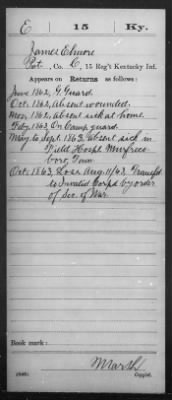 E | 15 | Ky.
James Elmore
Pvt., Co. C, 15 Reg't Kentucky Inf.
Appears on Returns as follows:
June 1862, G. Guard.
Oct. 1862, absent wounded.
Nov. 1862, absent sick at home.
Feby. 1863, On Camp guard.
May to Sept. 1863 absent sick in
Field Hospl. Murfrees-
boro, Tenn.
Oct. 1863, Loss Aug. 11/63. Transfd
to Invalid Corps by order
of Sec. of War.
Book mark:
Marsh
Copyist.